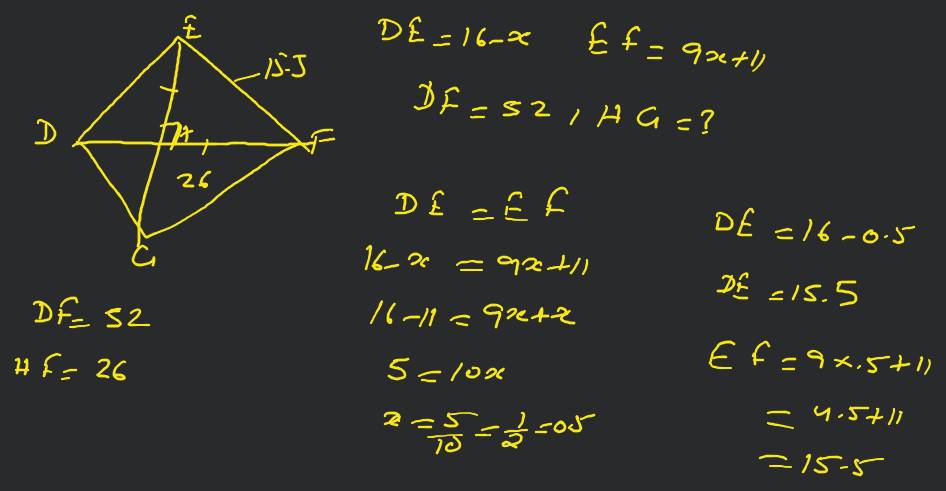 E
15.5
D
H
F
26
G
DF = 52
HF = 26
DE = 16-x EF = 9x+11
DF = 52, HG = ?
DE = EF
16-x = 9x+11
16-11 = 9x+x
5 = 10x
x = 5/10 = 1/2 = 0.5
DE = 16-0.5
DE = 15.5
EF = 9x.5+11
= 4.5+11
= 15.5